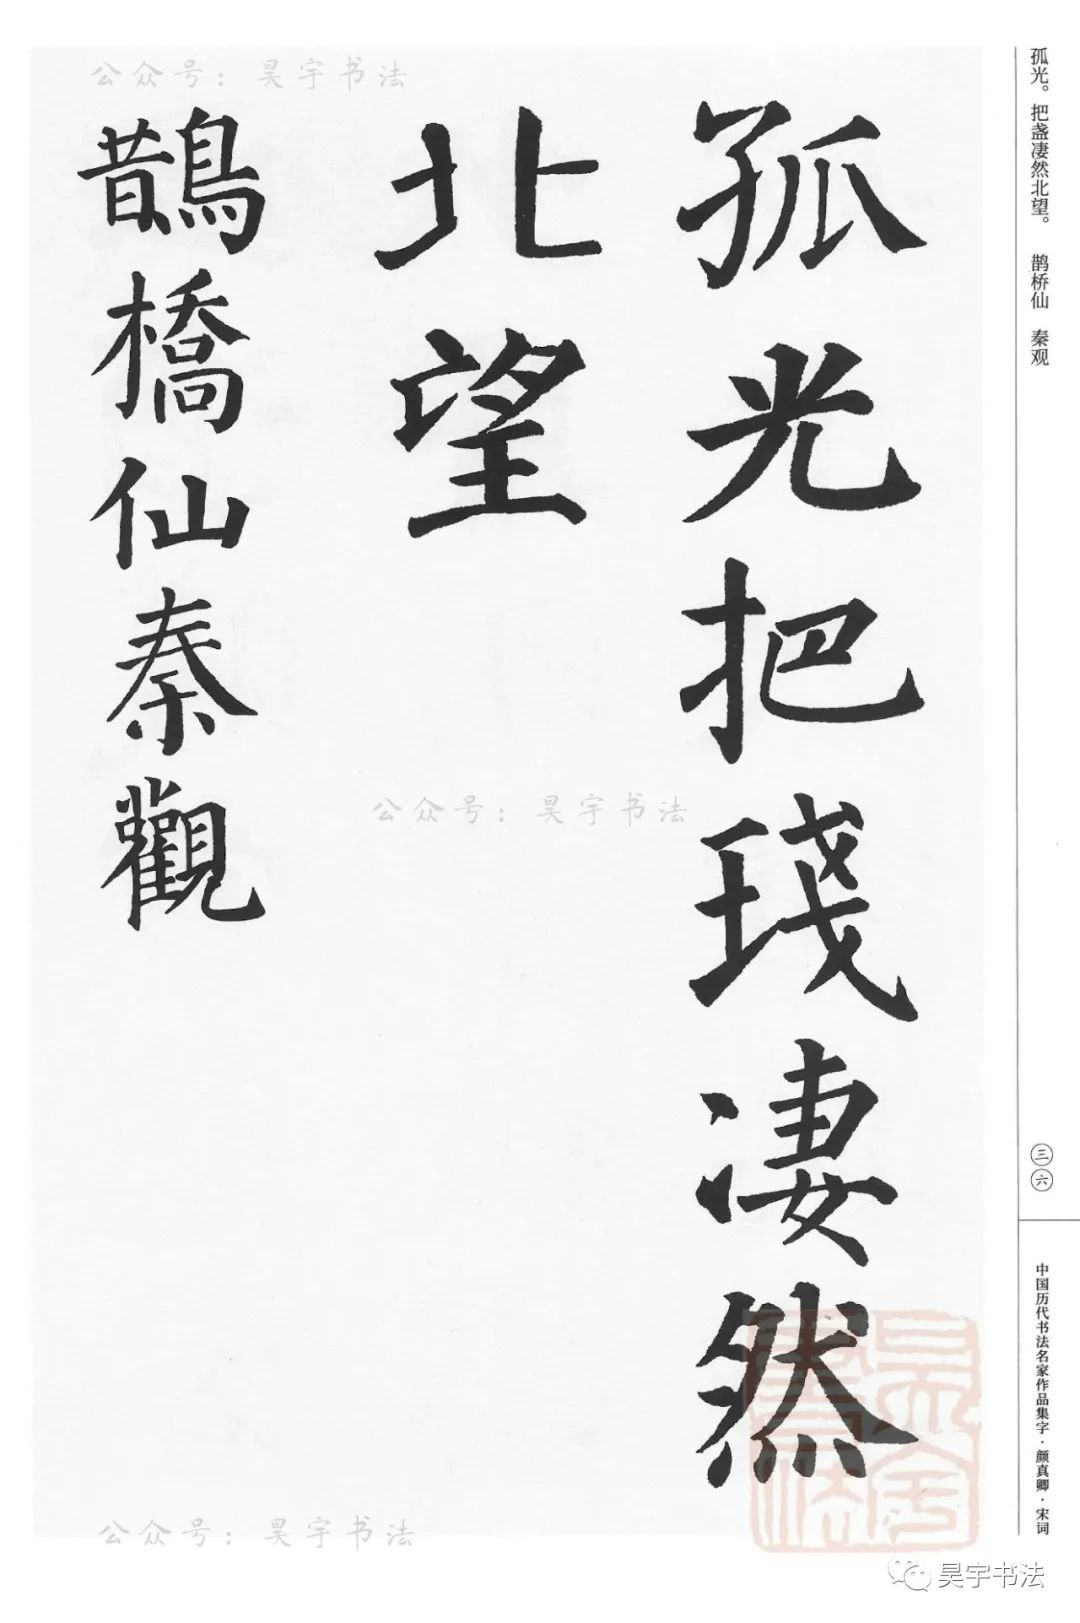 孤光。把盏凄然北望。　鹊桥仙　秦观
三六
中国历代书法名家作品集字·颜真卿·宋词
孤光把琖凄然
北望
鵲橋仙秦觀
公众号：昊宇书法
公众号：昊宇书法
公众号：昊宇书法
昊宇书法
昊宇书法